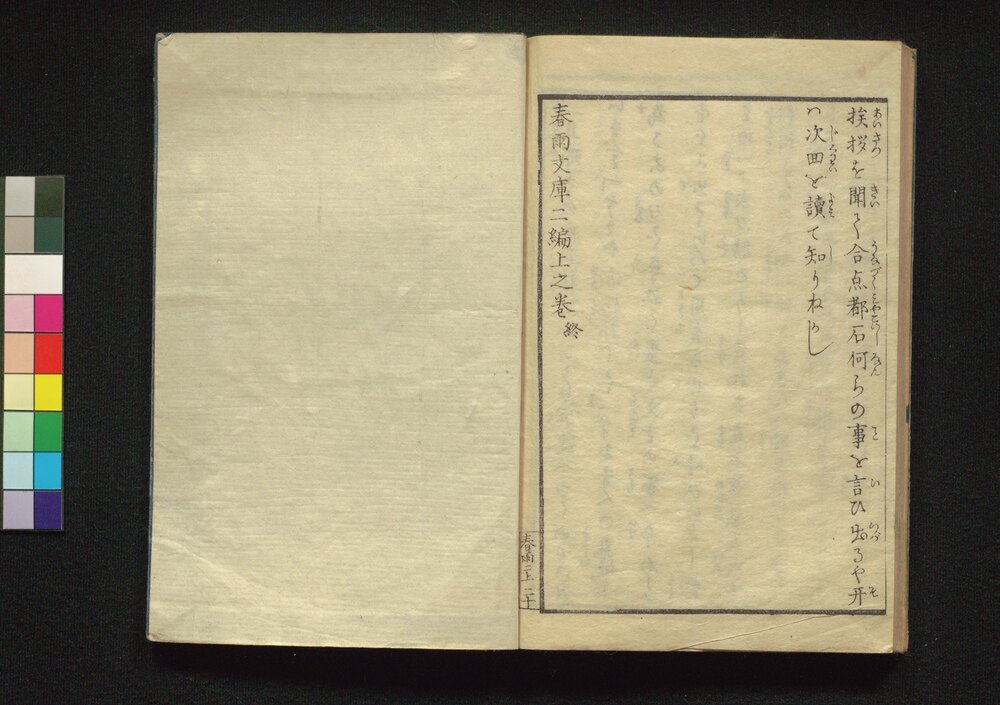 挨拶を聞て合点都石何らの事を言ひ出るや开
ハ次回を讀て知りねかし
春雨文庫二編上之巻終
春雨二上 二十